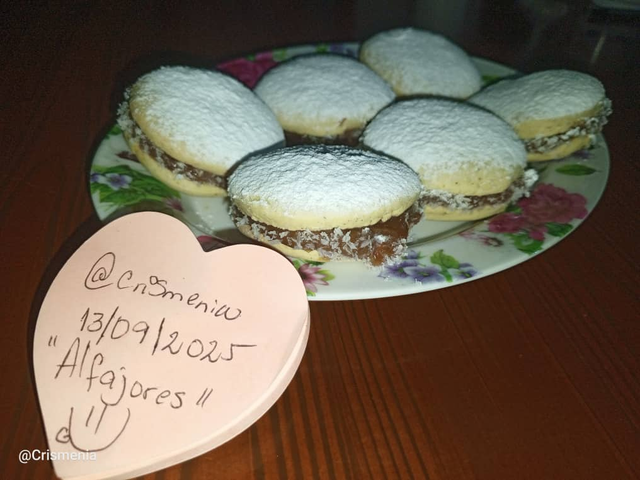 @Crismenia
13/09/2025
"Alfajores"
@Crismenia